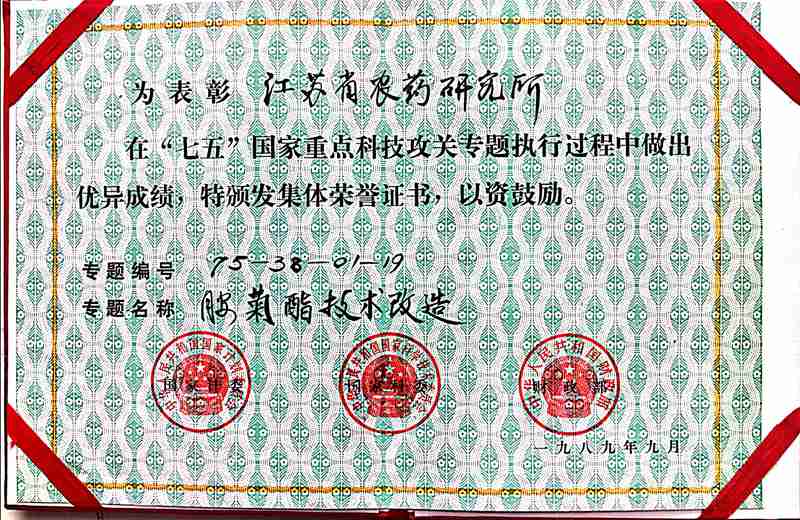 为表彰 江苏省农药研究所
在“七五”国家重点科技攻关专题执行过程中做出
优异成绩，特颁发集体荣誉证书，以资鼓励。
专题编号 75-38-01-19
专题名称 胺菊酯技术改造
中华人民共和国国家计划委员会
国家计委
中华人民共和国国家科学技术委员会
国家科委
中华人民共和国财政部
财政部
一九八九年九月